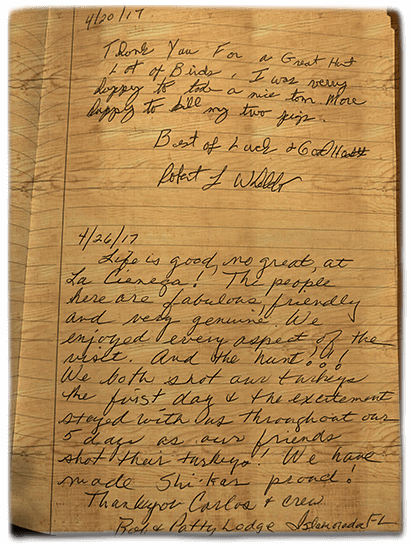 4/20/17
Thank You For a Great Hunt
Lot of Birds, I was very
happy to take a nice tom. More
happy to kill my two pigs.
Best of Luck & God
Robert L
4/26/17
Life is good, no great, at
La Cienega! The people
here are fabulous, friendly
and very genuine. We
enjoyed every aspect of the
visit. And the hunt!!!
We both shot our turkeys
the first day & the excitement
stayed with us throughout our
5 days as our friends
shot their turkeys! We have
made Shi-kar proud!
Thankyou Carlos & crew
& Patty Lodge Islamorada FL